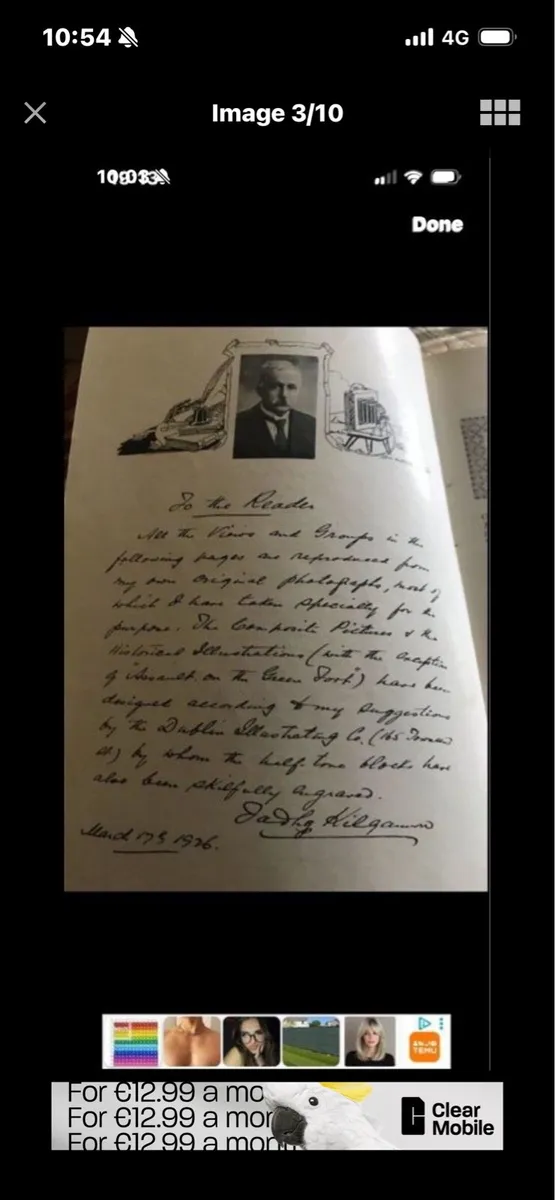 10:54
4G
Image 3/10
Done
To the Reader
All the Views and Groups in the
following pages are reproduced from
my own original photographs, most of
which I have taken specially for the
purpose. The Composite Pictures & the
Historical Illustrations (with the exception
of "Assault on the Green Fort") have been
designed according to my suggestions
by the Dublin Illustrating Co. (165
St) by whom the half-tone blocks have
also been skilfully engraved.
Tadhg Kilgannon
March 17th 1926.
TEMU
For €12.99 a mo
For €12.99 a mon
For €12.99 a month
Clear
Mobile